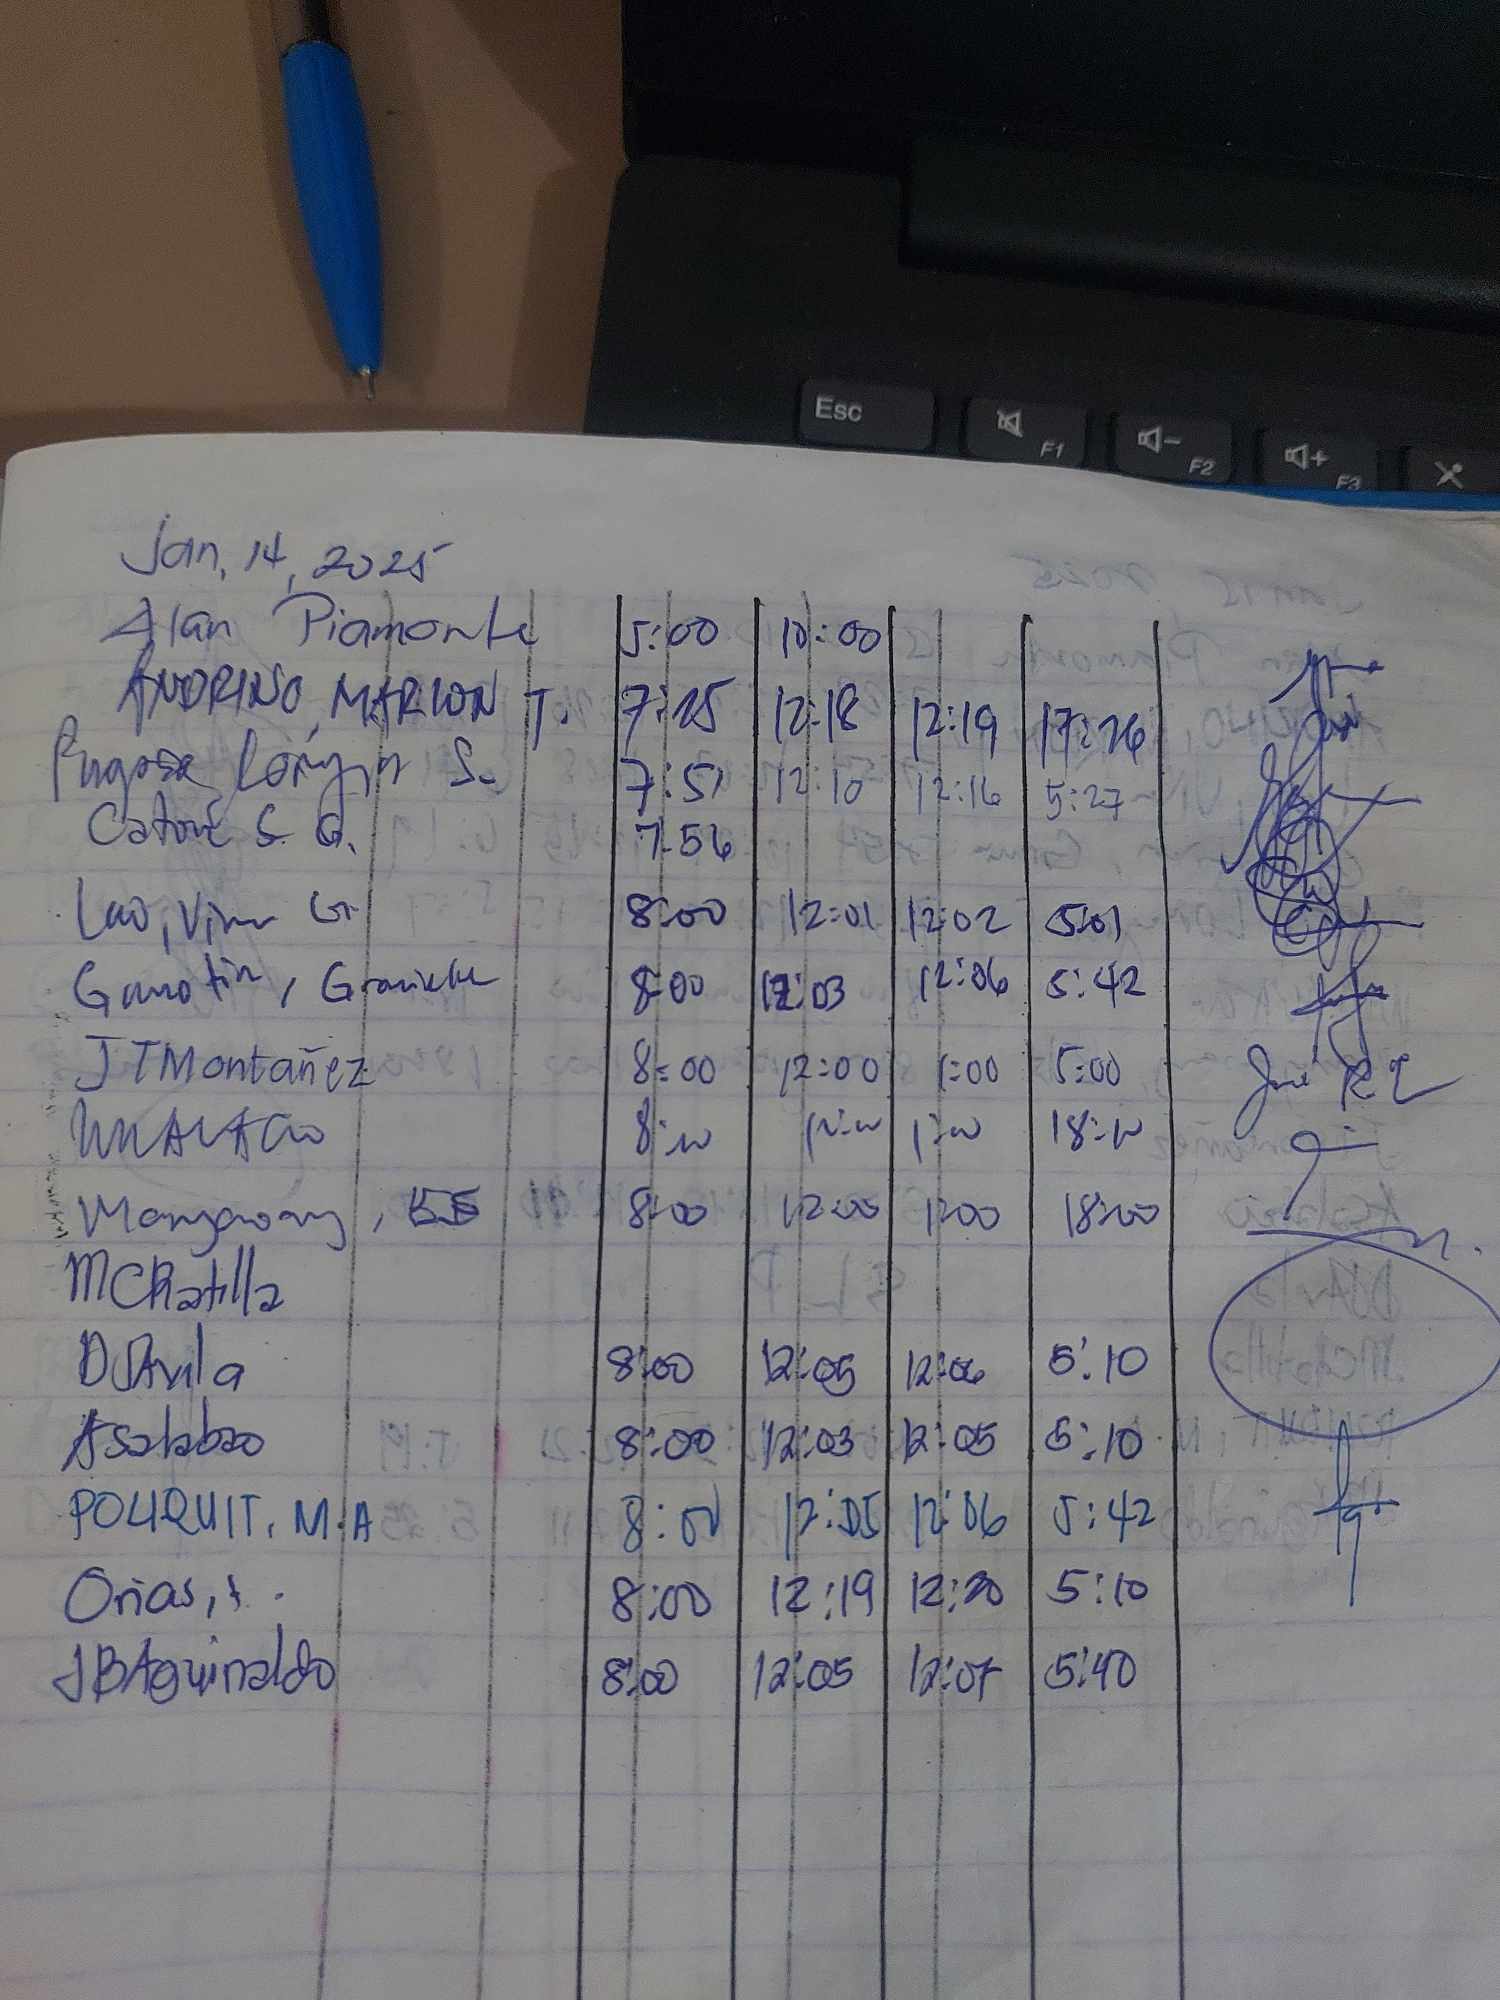 Esc
F1
F2
F3
Jan, 14, 2025
Alan Piamonte 5:00 10:00
ANDRINO, MARLON T. 7:25 12:18 12:19 17:26
S. 7:51 12:10 12:16 5:27
S. G. 7:56
Lao, G. 8:00 12:01 12:02 5:01
8:00 12:03 12:06 5:42
JTMontañez 8:00 12:00 1:00 5:00
8:00 12:00 1:00 18:00
8:00 12:00 1:00 18:00
MCRatilla
DJAvila 8:00 12:05 12:06 5:10
Asalabao 8:00 12:03 12:05 5:10
POLIQUIT, M.A 8:00 12:05 12:06 5:42
Orias, 8:00 12:19 12:20 5:10
JBAguinaldo 8:00 12:05 12:07 5:40